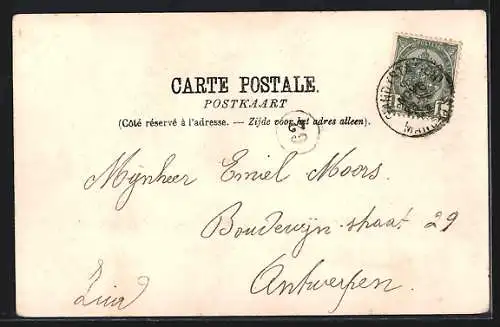 CARTE POSTALE.
POSTKAART
(Côté réservé à l'adresse. — Zijde voor het adres alleen).
Mynheer Emiel Moors.
Boudewijn-straat 29
Antwerpen.